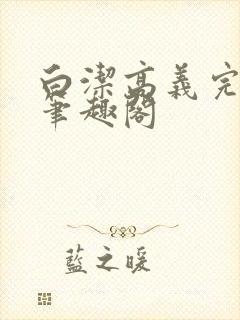 白潔高義完
筆趣閣
藍之暖